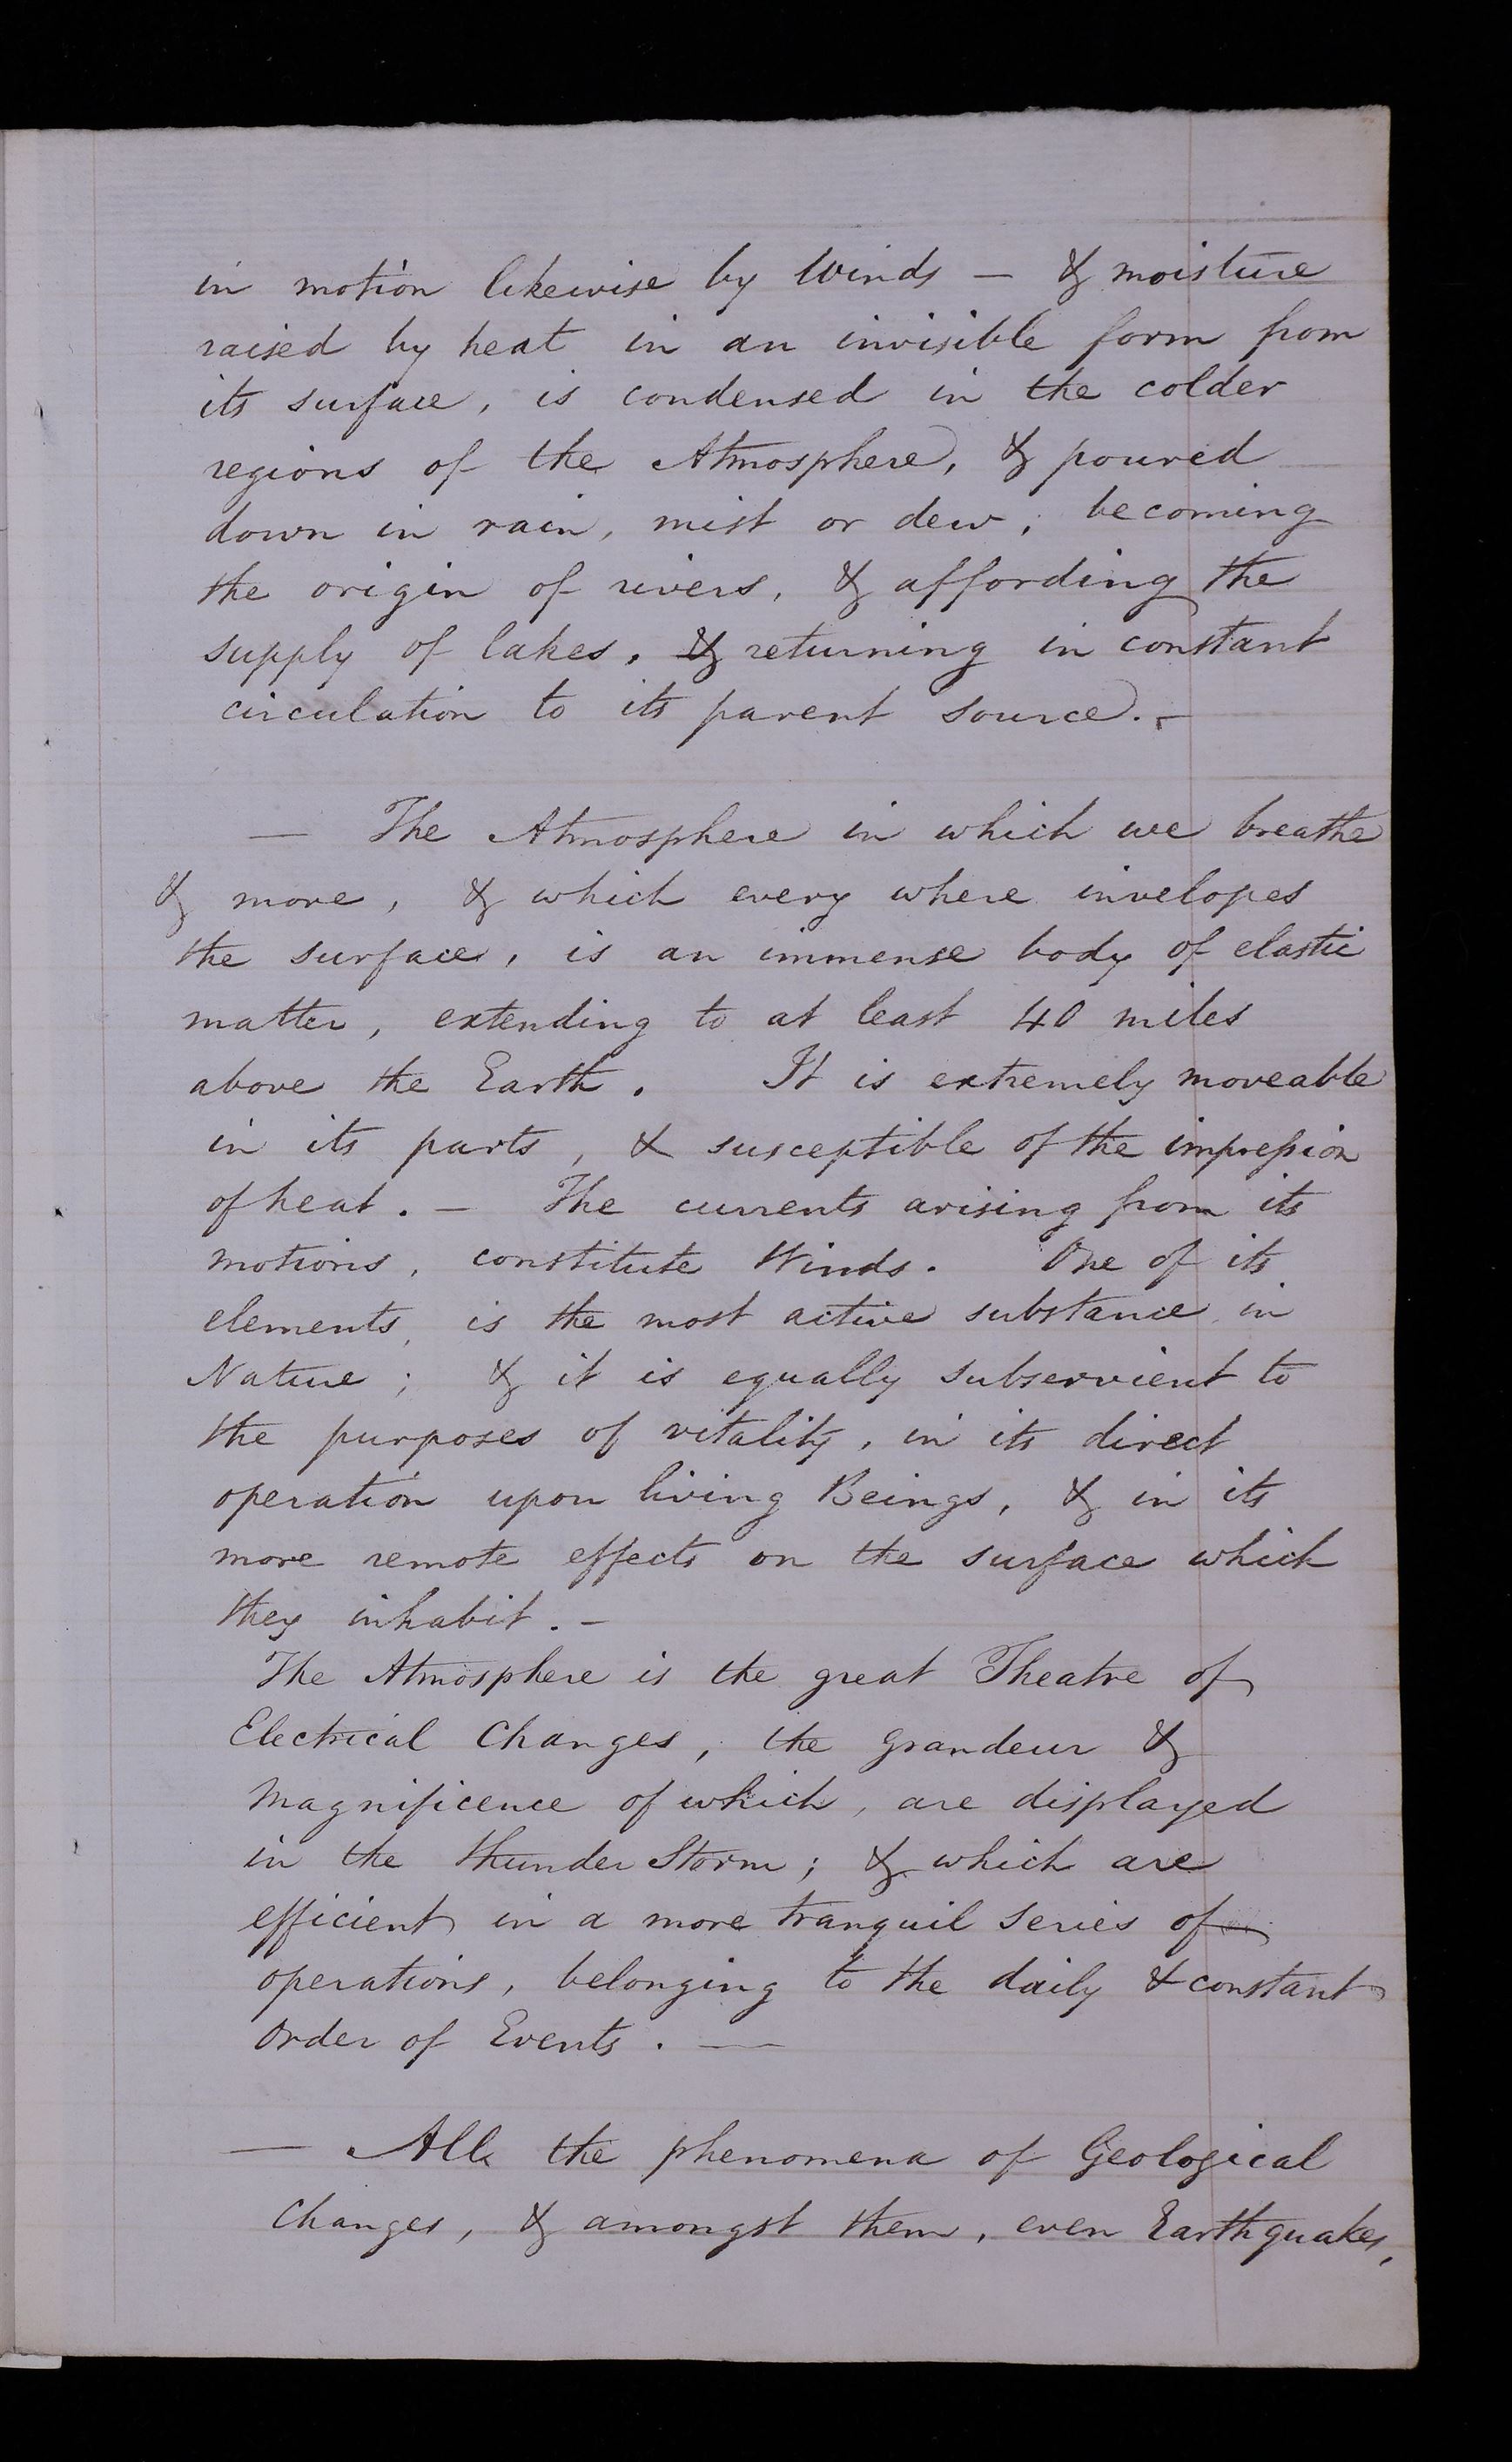 in motion likewise by Winds — & moisture
raised by heat in an invisible form from
its surface, is condensed in the colder
regions of the Atmosphere, & poured
down in rain, mist or dew; becoming
the origin of rivers, & affording the
supply of lakes, & returning in constant
circulation to its parent source. —
— The Atmosphere in which we breathe
& move, & which every where invelopes
the surface, is an immense body of elastic
matter, extending to at least 40 miles
above the Earth. It is extremely moveable
in its parts, & susceptible of the impression
of heat. — The currents arising from its
motions, constitute Winds. One of its
elements, is the most active substance in
Nature; & it is equally subservient to
the purposes of vitality, in its direct
operation upon living Beings, & in its
more remote effects on the surface which
they inhabit. —
The Atmosphere is the great Theatre of
Electrical Changes, the grandeur &
Magnificence of which, are displayed
in the thunder Storm; & which are
efficient in a more tranquil series of
operations, belonging to the daily & constant
Order of Events. —
— All the phenomena of Geological
Changes, & amongst them, even Earthquakes,